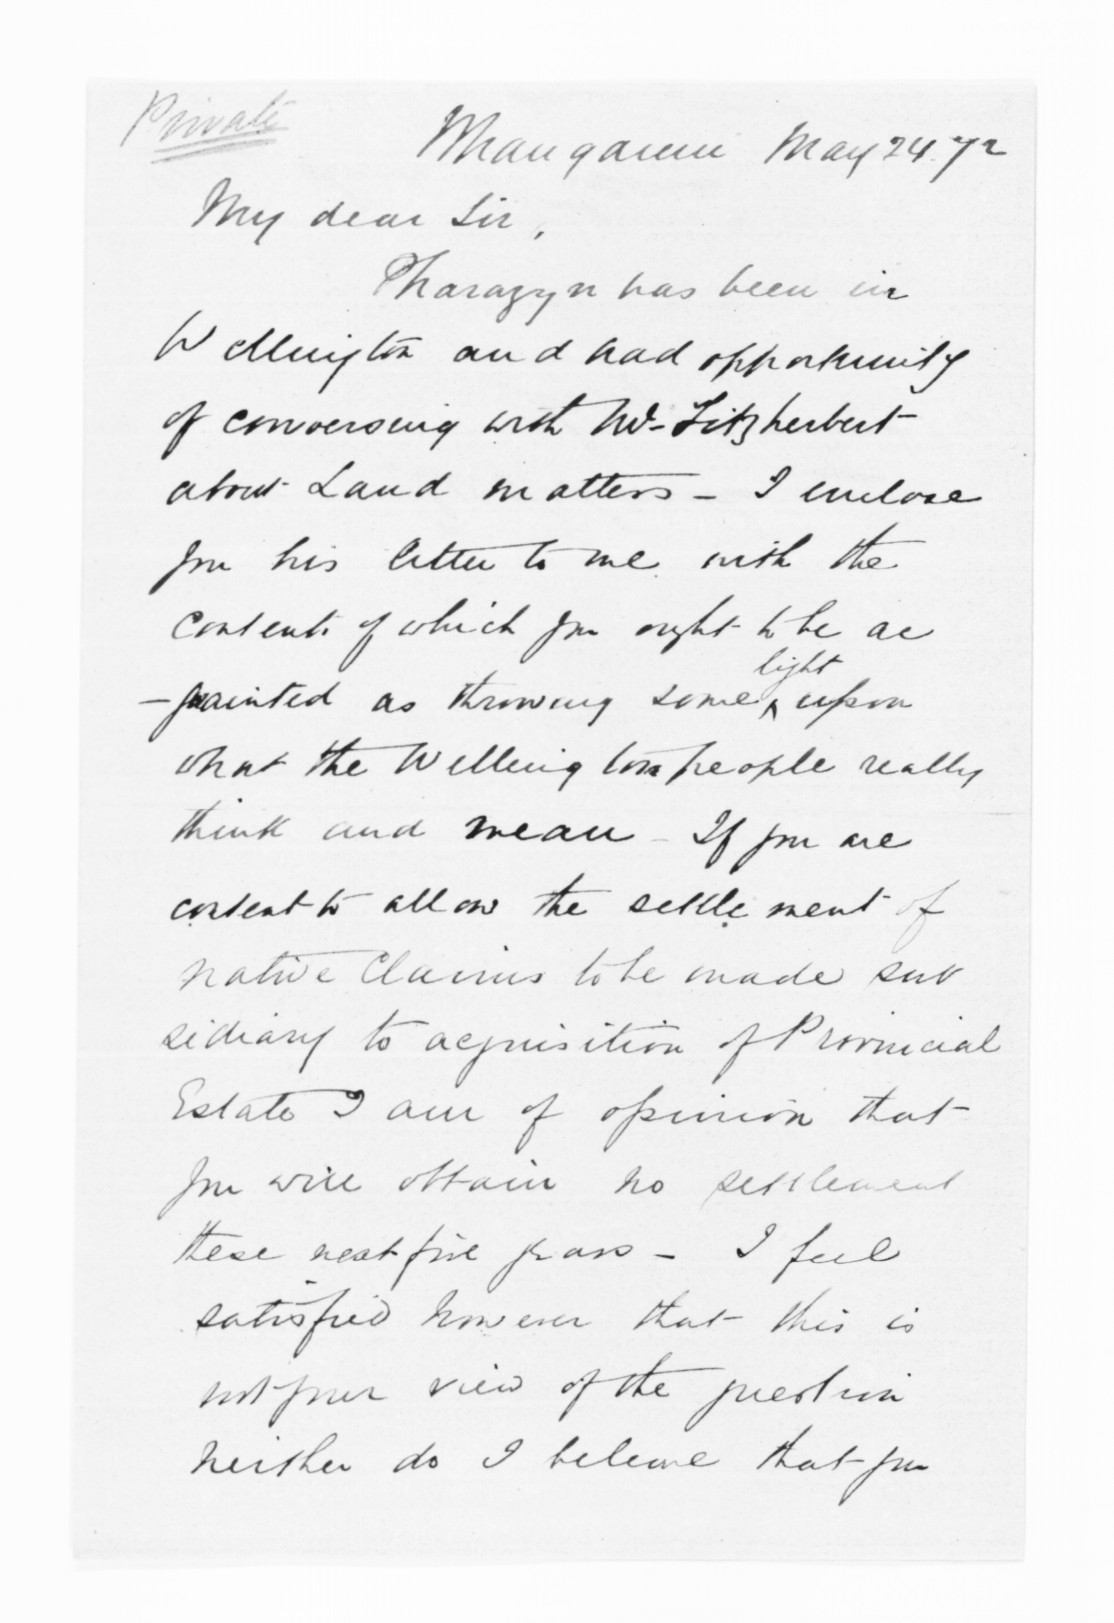 Private
Whanganui May 24. 72
My dear Sir,
Pharazyn has been in
Wellington and had opportunity
of conversing with Mr Fitzherbert
about Land matters - I enclose
you his letter to me with the
contents of which you ought to be ac
-quainted as throwing some light upon
what the Wellington people really
think and mean - If you are
content to allow the settlement of
native Claims to be made sub
sidiary to acquisition of Provincial
Estate I am of opinion that
you will obtain no settlement
these next five years - I feel
satisfied however that this is
not your view of the question
neither do I beleive that you